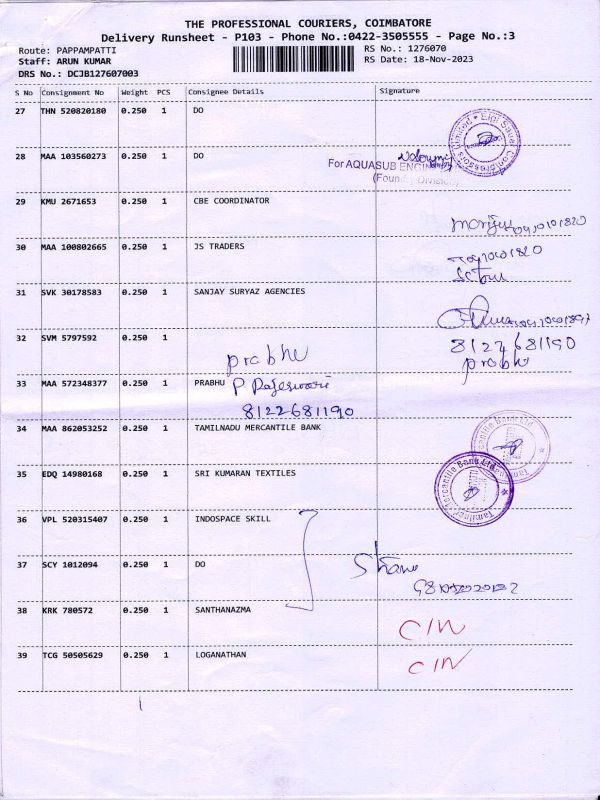 THE PROFESSIONAL COURIERS, COIMBATORE
Delivery Runsheet - P103 - Phone No.:0422-3505555 - Page No.:3
Route: PAPPAMPATTI RS No.: 1276070
Staff: ARUN KUMAR RS Date: 18-Nov-2023
DRS No.: DCJB127607003
S No Consignment No Weight PCS Consignee Details Signature
27 THN 520820180 0.250 1 DO
Elgi Sauer Compressors Limited
28 MAA 103560273 0.250 1 DO
For AQUASUB ENGINEERING
(Foundry Division)
29 KMU 2671653 0.250 1 CBE COORDINATOR
30 MAA 100802665 0.250 1 JS TRADERS
31 SVK 30178583 0.250 1 SANJAY SURYAZ AGENCIES
32 SVM 5797592 0.250 1
prabhu
8122681190
prabhu
33 MAA 572348377 0.250 1 PRABHU P Rajeswari
8122681190
34 MAA 862053252 0.250 1 TAMILNADU MERCANTILE BANK
Tamilnad Mercantile Bank Ltd.
35 EDQ 14980168 0.250 1 SRI KUMARAN TEXTILES
Tamilnad Mercantile Bank Ltd.
36 VPL 520315407 0.250 1 INDOSPACE SKILL
37 SCY 1012094 0.250 1 DO
38 KRK 780572 0.250 1 SANTHANAZMA
C/N
39 TCG 50505629 0.250 1 LOGANATHAN
C/N